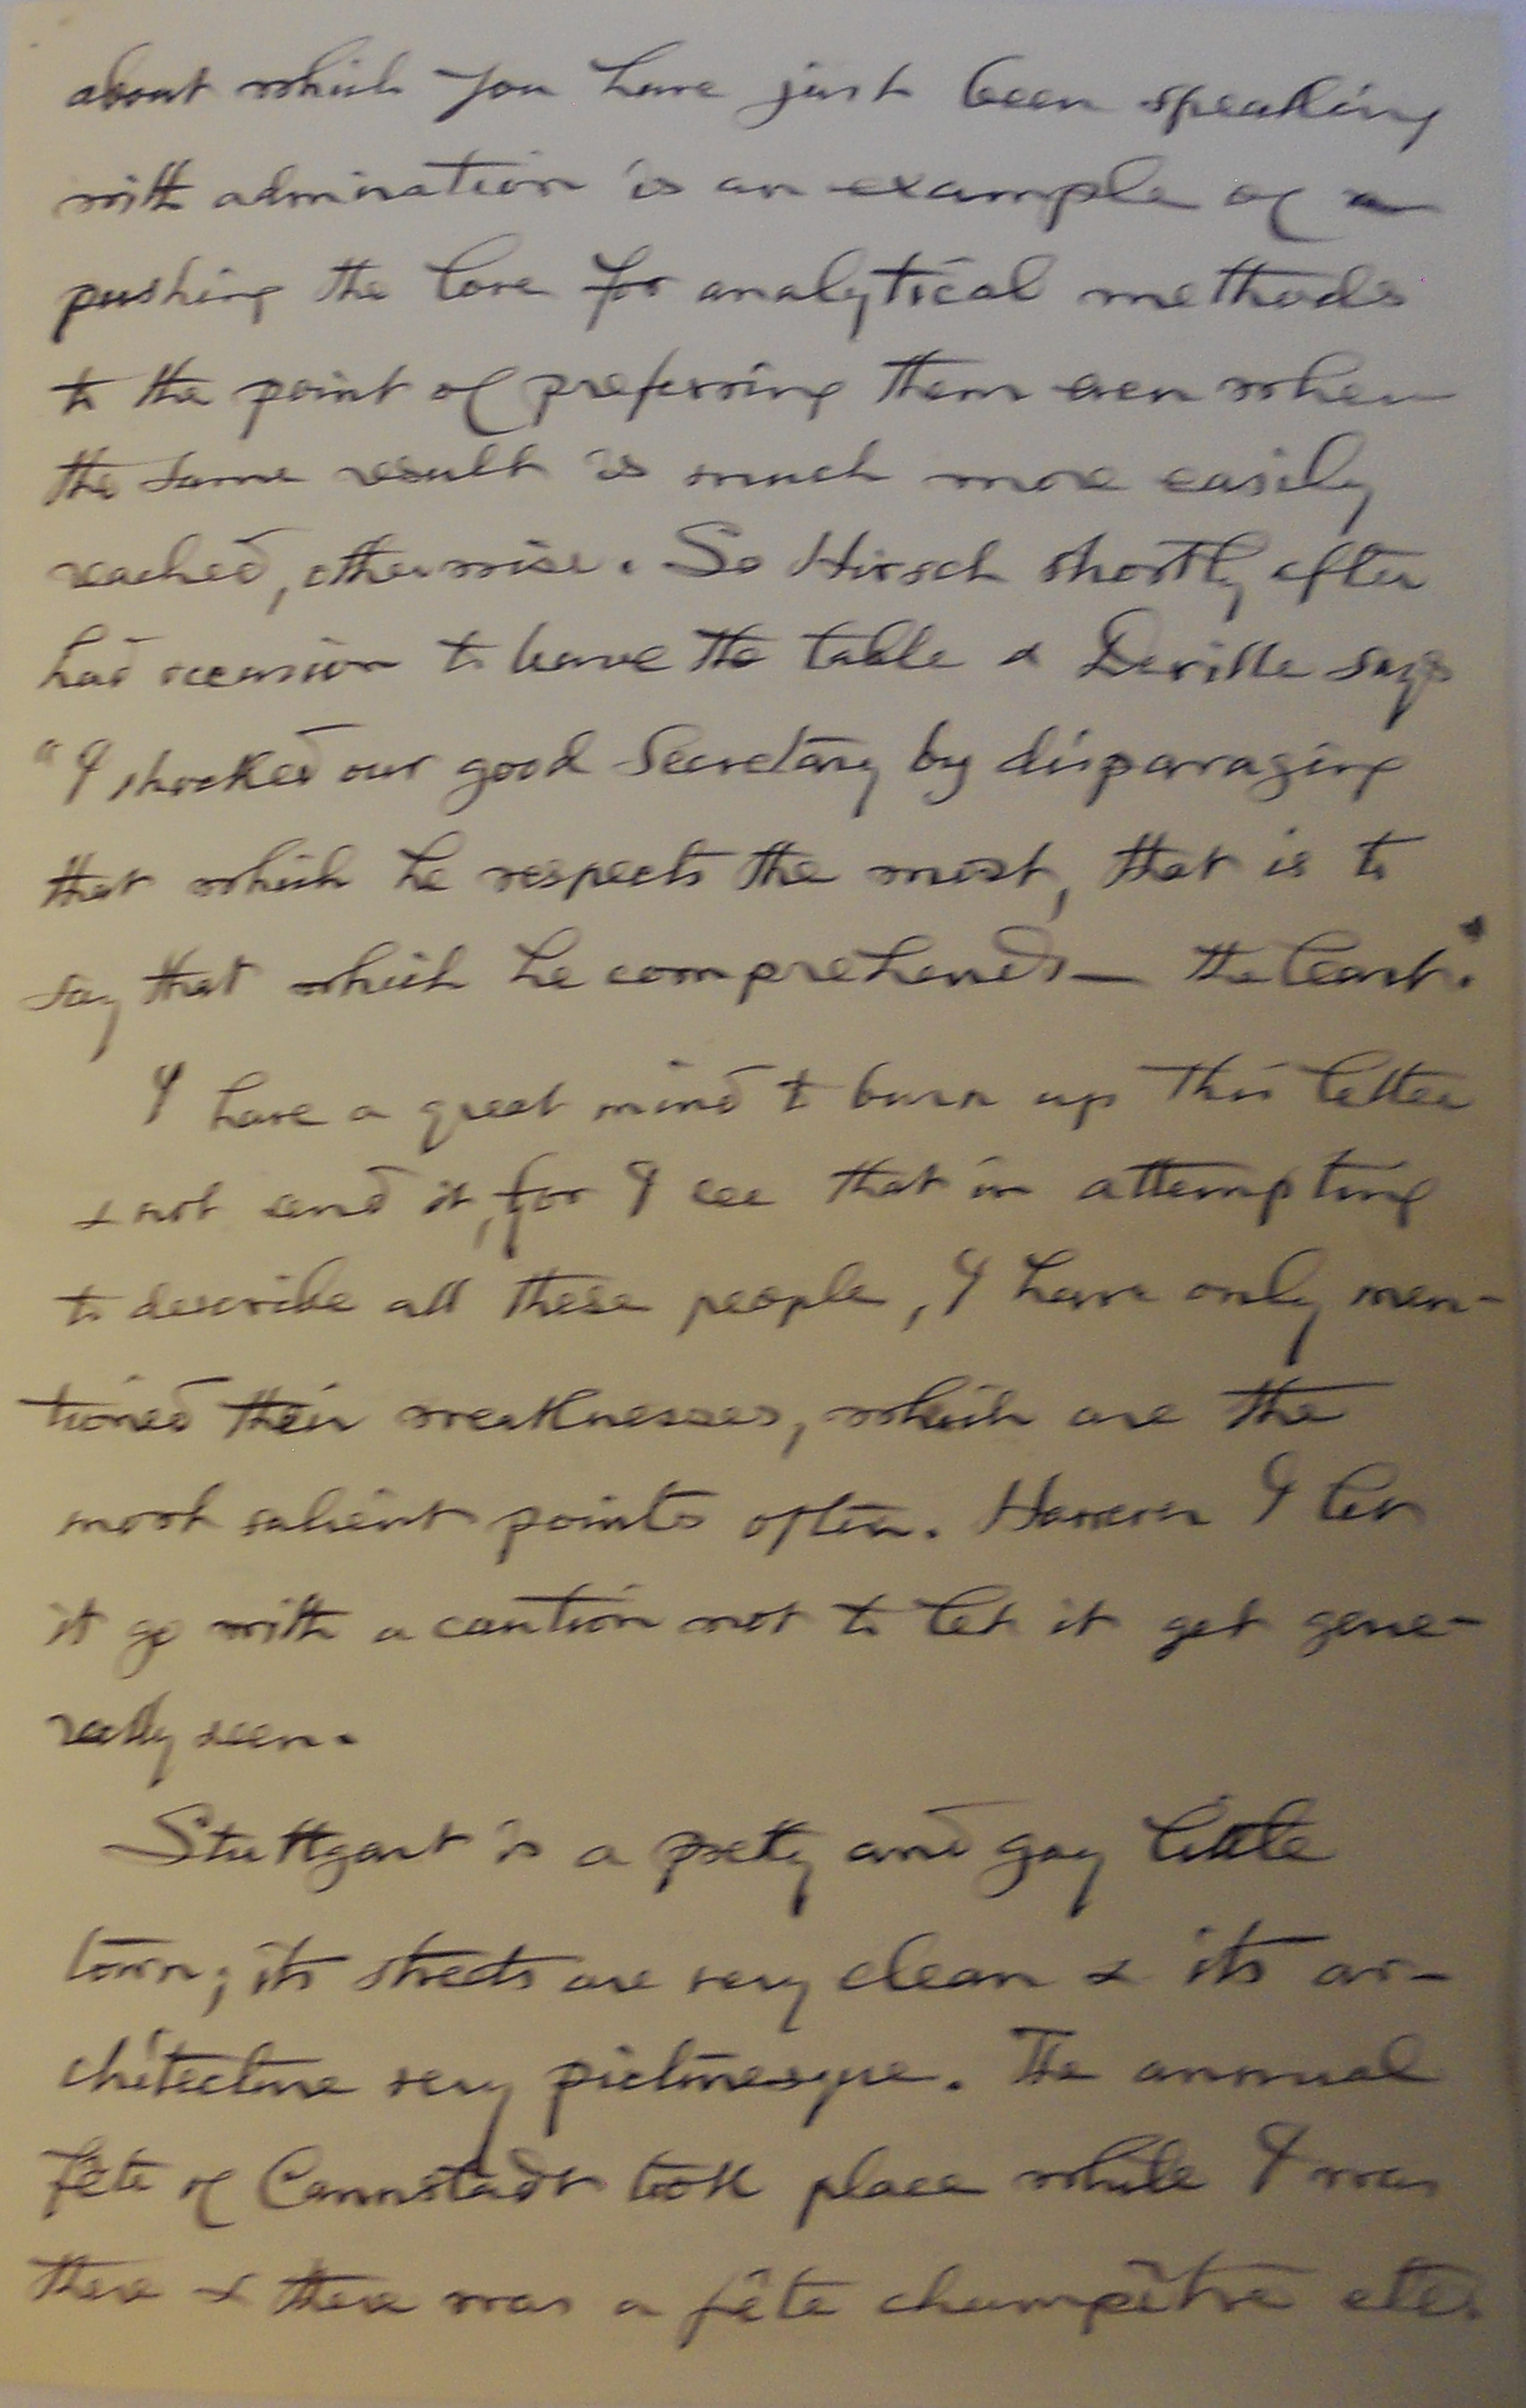 about which you have just been speaking
with admiration is an example of a
pushing the love for analytical methods
to the point of preferring them even when
the same result is much more easily
reached, otherwise. So Hirsch shortly after
had occasion to leave the table & Deville says
"I shocked our good Secretary by disparaging
that which he respects the most, that is to
say that which he comprehends — the least."
I have a great mind to burn up this letter
& not send it, for I see that in attempting
to describe all these people, I have only men-
tioned their weaknesses, which are the
most salient points often. However I let
it go with a caution not to let it get gene-
rally seen.
Stuttgart is a pretty and gay little
town; its streets are very clean & its ar-
chitecture very picturesque. The annual
fête of Cannstadt took place while I was
there & there was a fête champêtre etc.